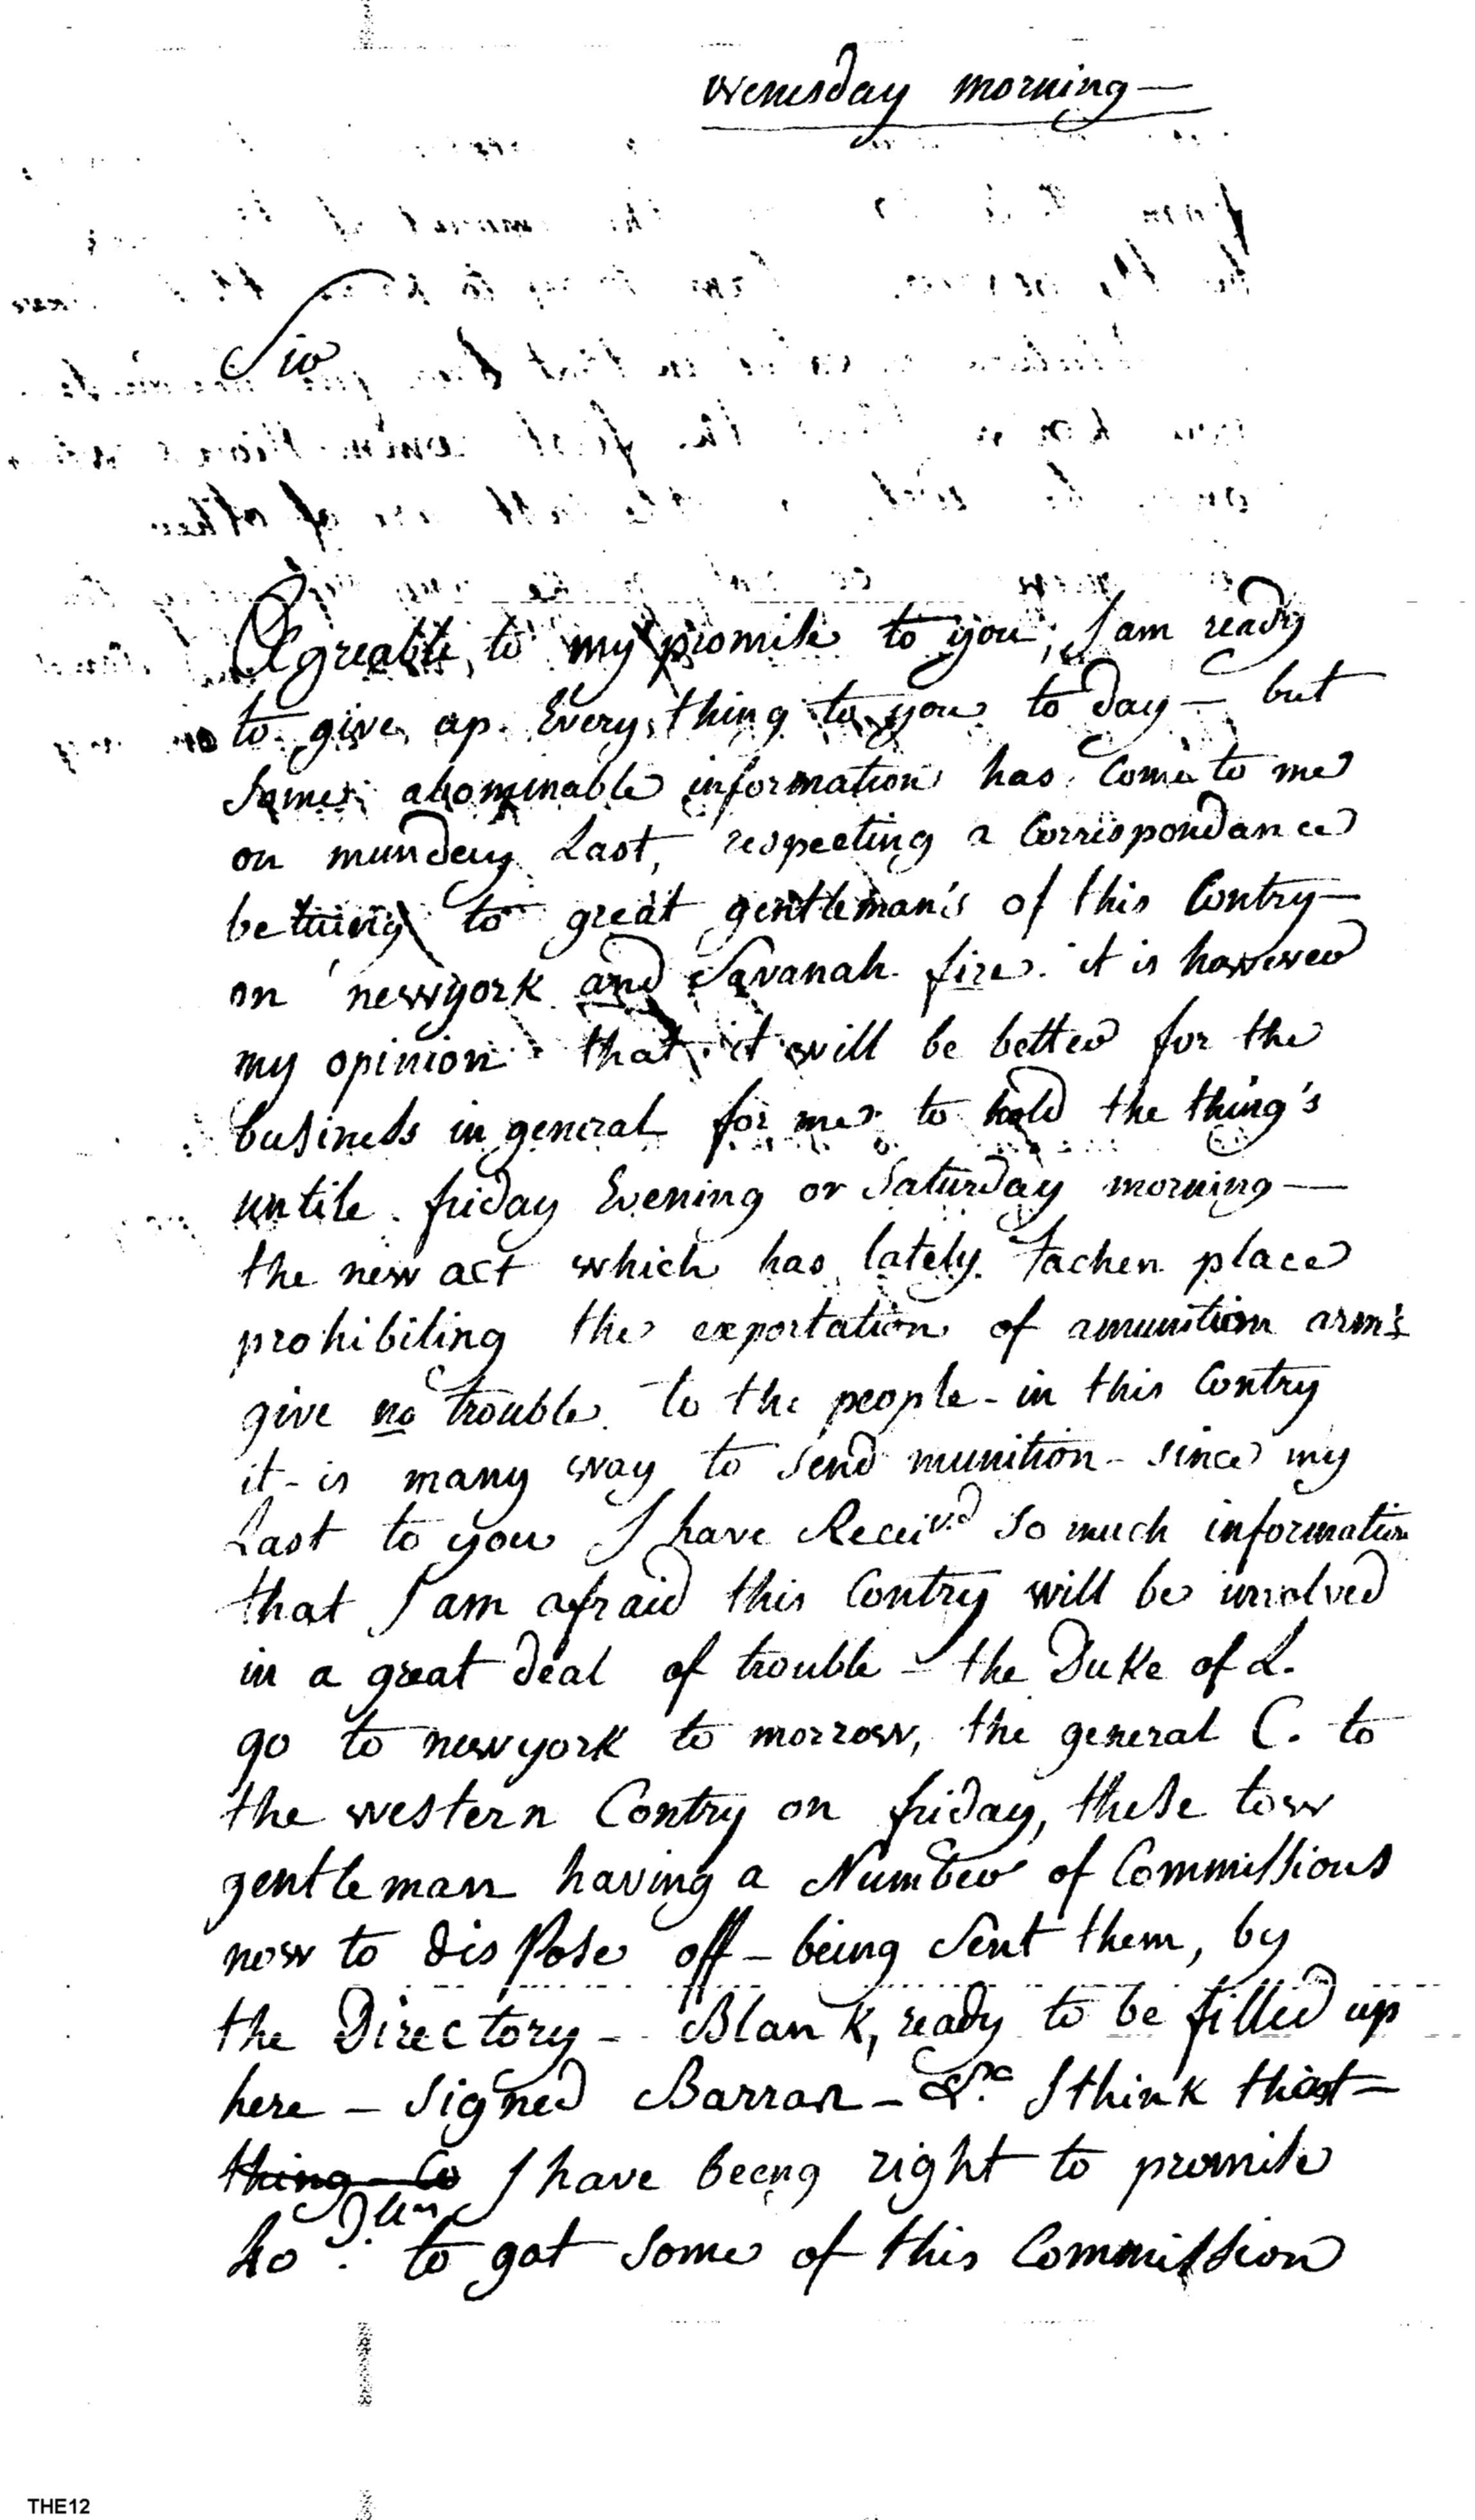 wenesday morning —
Sir
Agreable, to my promise to you, I am ready
to give up Every thing to you to day — but
Some abominable information has Come to me
on munday Last, respecting a Correspondance
betwing to great gentleman's of this Contry —
on newyork and Savanah fire. it is however
my opinion that it will be better for the
business in general for me to hold the thing's
untile friday Evening or Saturday morning —
the new act which has lately tachen place
prohibiting the exportation of amunition arm's
give no trouble to the people - in this Contry
it - is many way to Send munition - since my
Last to you I have Receiv.d So much information
that I am afraid this Contry will be involved
in a great deal of trouble — the Duke of L.
go to newyork to morrow, the general C. to
the western Contry on friday, these tow
gentleman having a Number of Commissions
now to dis Pose off — being Sent them, by
the Directory — Blank, ready to be filled up
here — Signed Barras — &c. I think that —
thing I have beeng right to promise
to get Some of this Commission
THE12